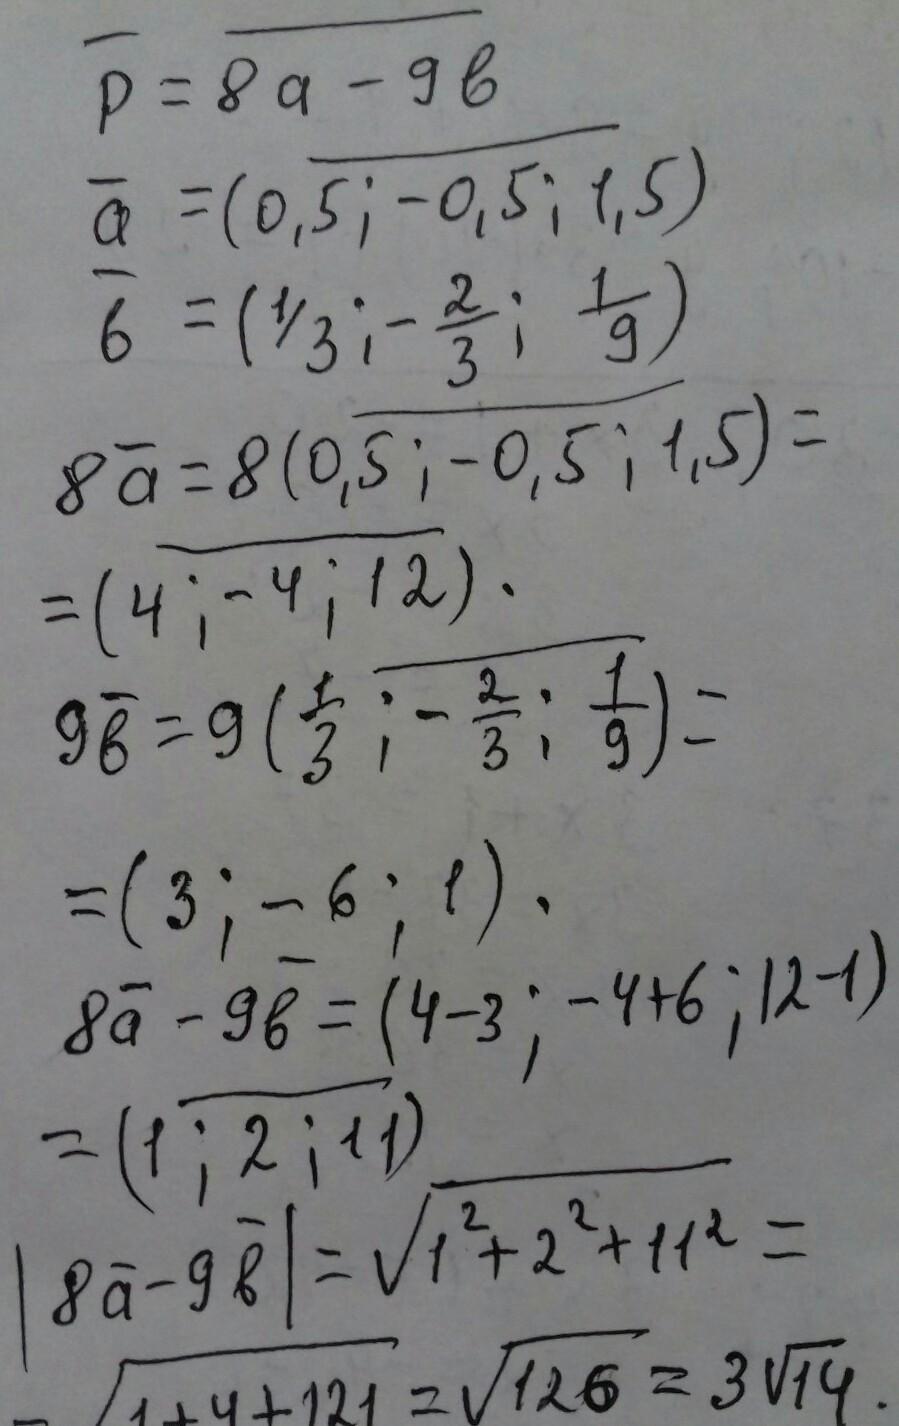 p̅ = 8a - 9b
a̅ = (0,5; -0,5; 1,5)
b̅ = (1/3; -2/3; 1/9)
8a̅ = 8(0,5; -0,5; 1,5) =
= (4; -4; 12).
9b̅ = 9(1/3; -2/3; 1/9) =
= (3; -6; 1).
8a̅ - 9b̅ = (4-3; -4+6; 12-1)
= (1; 2; 11)
|8a̅ - 9b̅| = √1²+2²+11² =
= √1+4+121 = √126 = 3√14.